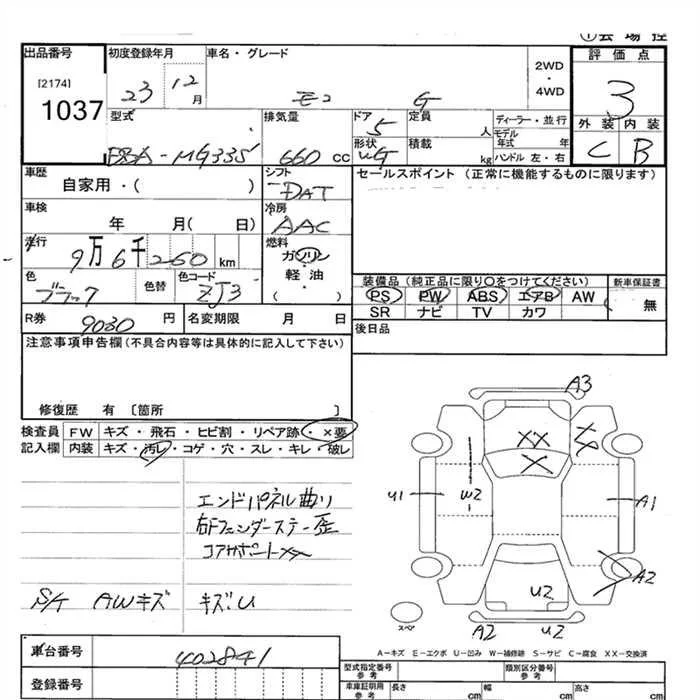 ①会場控
出品番号 初度登録年月 車名・グレード 2WD ・ 4WD 評価点
[2174]
1037
23 12月 E2 G 3
型式 排気量 ドア 定員 人 ディーラー・並行 外装 内装
DBA-MG33S 660cc 5 形状 積載 kg モデル年式 年 ハンドル 左・右 C B
車歴 シフト セールスポイント (正常に機能するものに限ります)
自家用・( ) DAT
車検 冷房
年 月( 日) AAC
走行 燃料
9万6千260km ガソリン・軽油・( )
色 色替 色コード 装備品 (純正品に限り○をつけてください) 新車保証書
ブラック ZJ3 PS PW ABS エアB AW 無
SR ナビ TV カワ
R券 9030円 名変期限 月 日 後日品
注意事項申告欄(不具合内容等は具体的に記入して下さい)
修復歴 有 [箇所 ]
検査員 FW キズ・飛石・ヒビ割・リペア跡・×要
記入欄 内装 キズ・汚レ・コゲ・穴・スレ・キレ・破レ
A3
XX
X
U1 W2 A1
エンドパネル曲り
右Fフェンダーステー歪
コアサポートXX
A2
U2
S/K AWキズ キズ.U
スペア
A2 U2
A－キズ E－エクボ U－凹み W－補修跡 S－サビ C－腐食 XX－交換済
車台番号 402841
登録番号
型式指定番号 参考 類別区分番号 参考
車庫証明用 参考 長さ cm 幅 cm 高さ cm